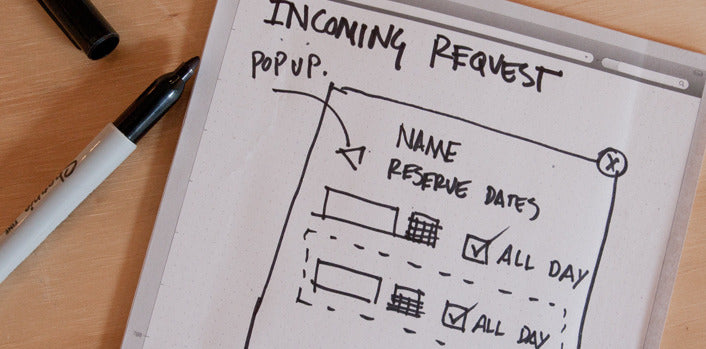 INCOMING REQUEST
POPUP.
X
NAME
RESERVE DATES
ALL DAY
ALL DAY
Sharpie